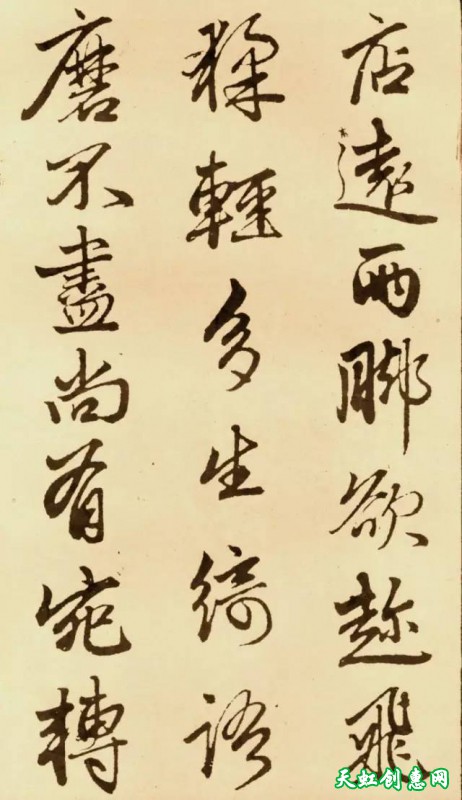 店遠兩脚欲趂飛
猱輕多生綺語
磨不盡尚有宛轉
天虹创惠网